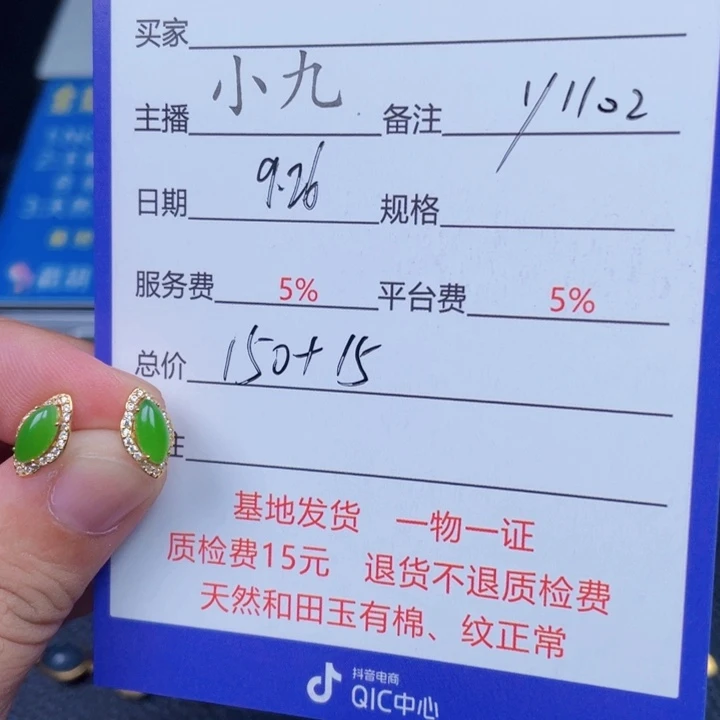 买家
主播 小九 备注 1/1102
日期 9.26 规格
服务费 5% 平台费 5%
总价 150+15
注
基地发货 一物一证
质检费15元 退货不退质检费
天然和田玉有棉、纹正常
抖音电商
QIC中心